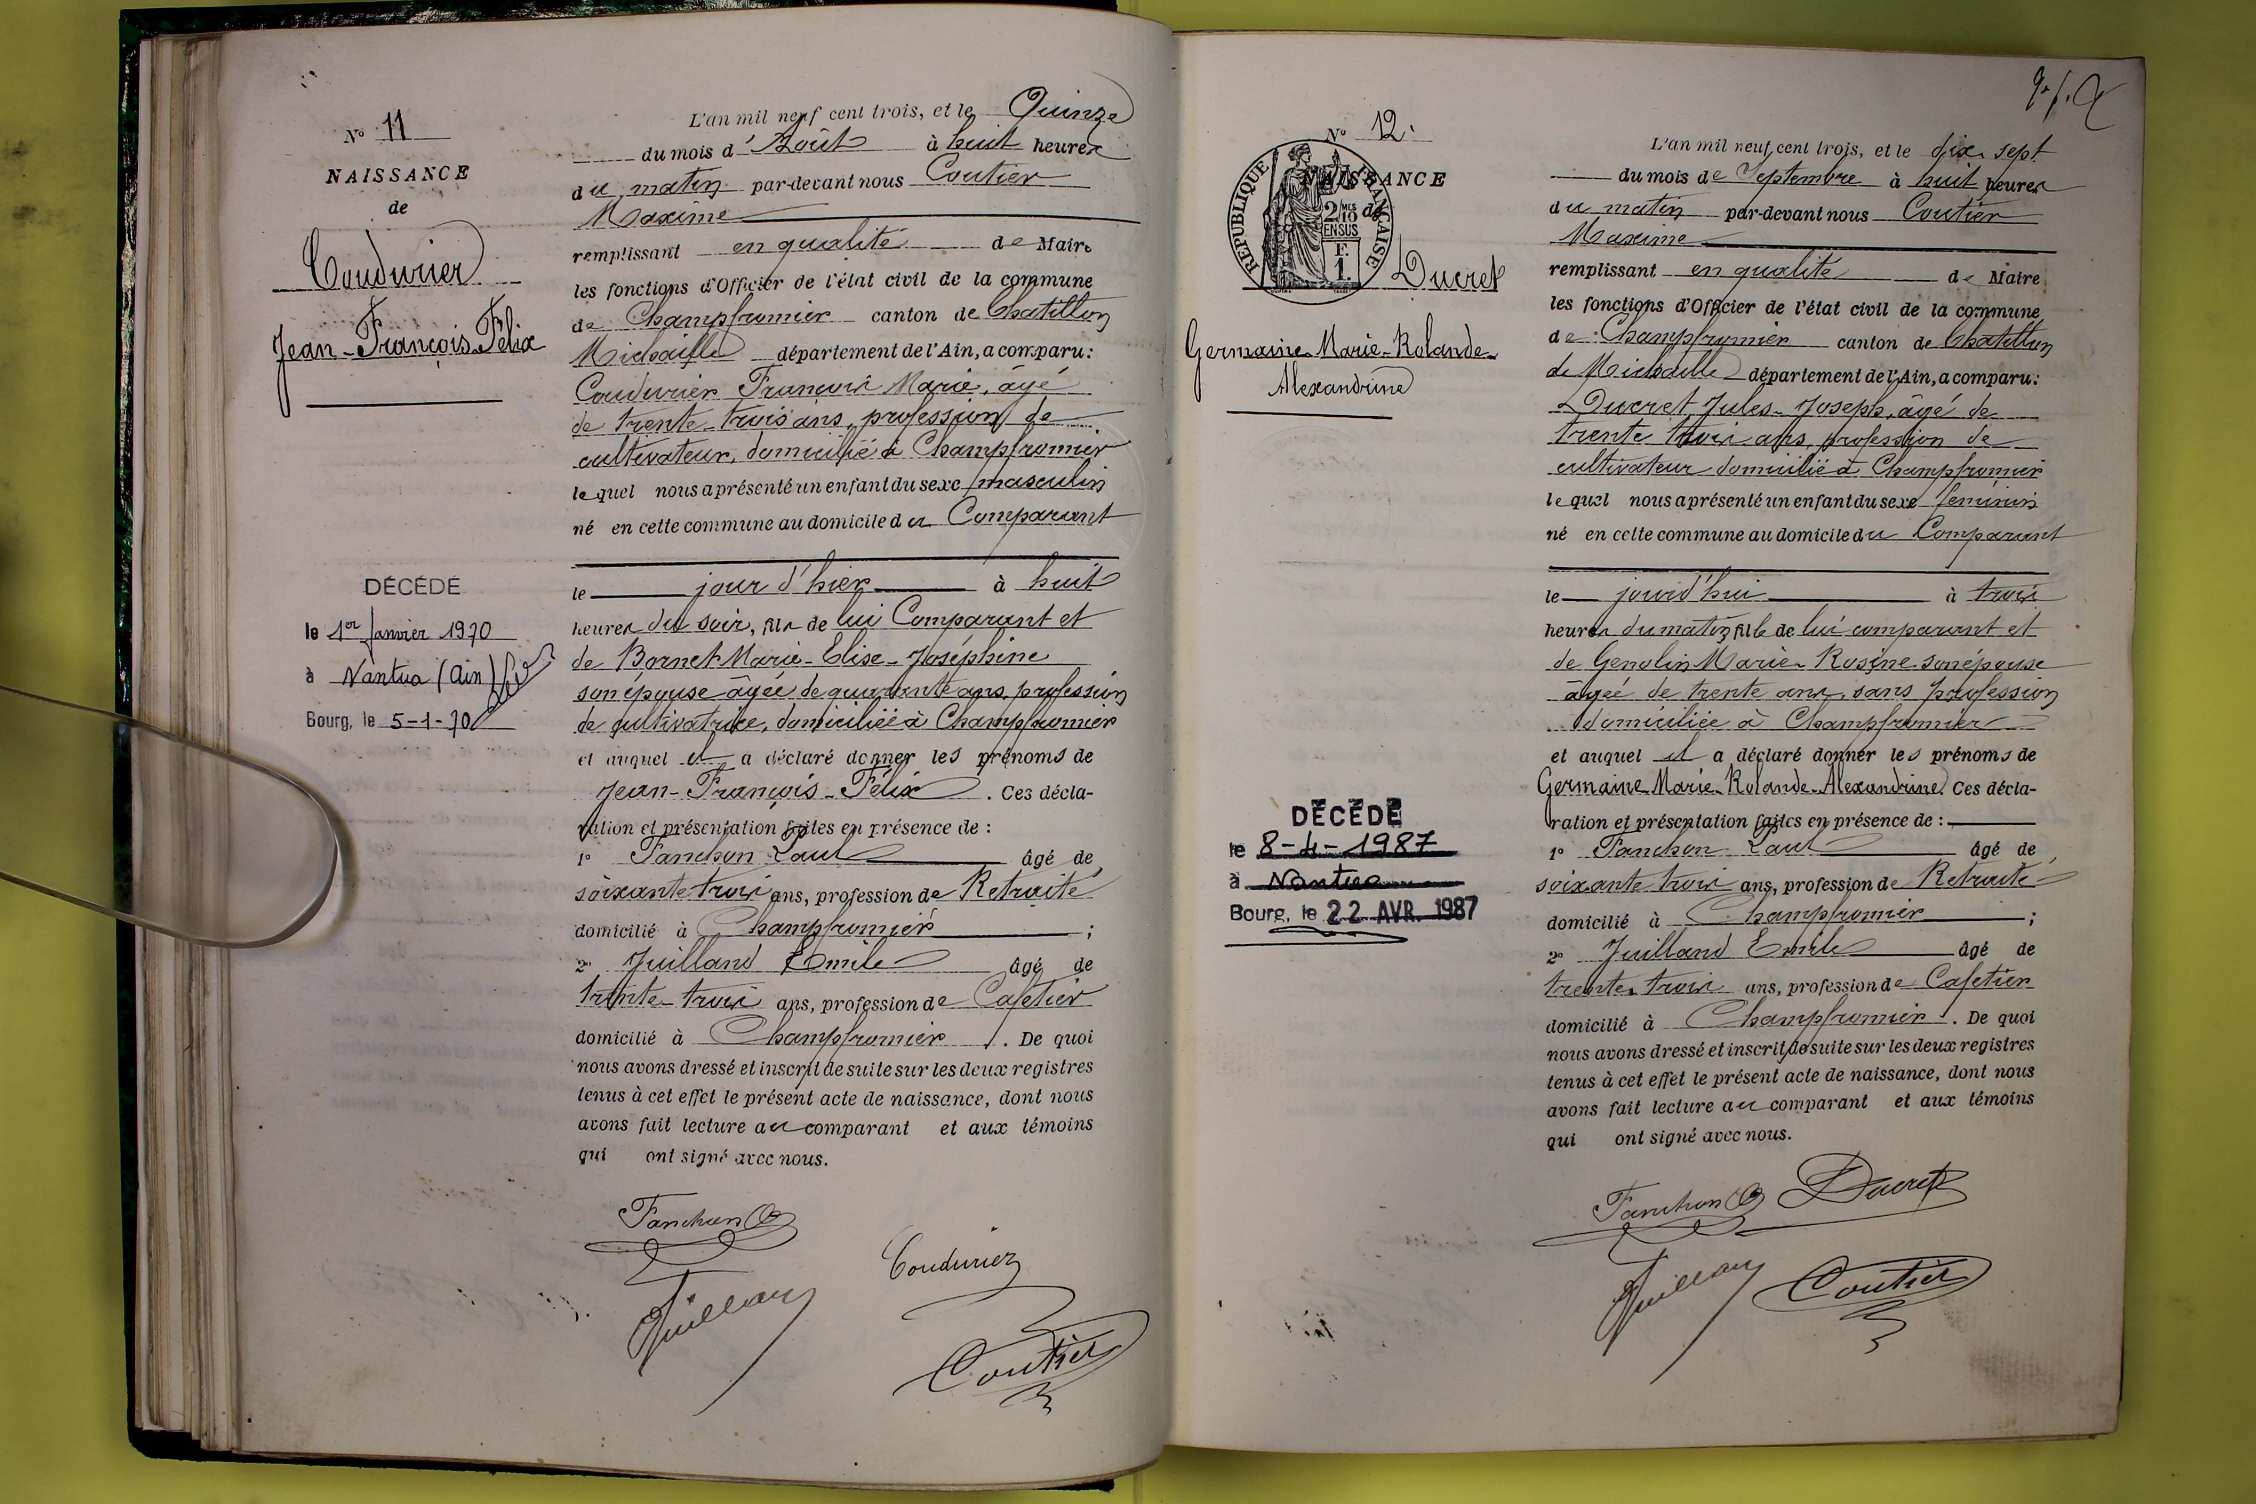 N° 11
NAISSANCE
de
Coudurier
Jean-François-Félix
DÉCÉDÉ
le 1er Janvier 1970
à Nantua (Ain)
Bourg, le 5-1-70
L'an mil neuf cent trois, et le Quinze
du mois d'Août à huit heures
du matin par-devant nous Coutier
Maxime
remplissant en qualité de Maire
les fonctions d'Officier de l'état civil de la commune
de Champfromier canton de Chatillon
Michaille département de l'Ain, a comparu:
Coudurier François Marie, âgé
de trente-trois ans, profession de
cultivateur, domicilié à Champfromier
lequel nous a présenté un enfant du sexe masculin
né en cette commune au domicile du Comparant
le jour d'hier à huit
heures du soir, fils de lui Comparant et
de Bornet Marie-Elise-Joséphine
son épouse âgée de quarante ans, profession
de cultivatrice, domiciliée à Champfromier
et auquel il a déclaré donner les prénoms de
Jean-François-Félix. Ces décla-
ration et présentation faites en présence de :
1° Fanchon Paul âgé de
soixante trois ans, profession de Retraité
domicilié à Champfromier ;
2° Juilland Emile âgé de
trente-trois ans, profession de Cafetier
domicilié à Champfromier. De quoi
nous avons dressé et inscrit de suite sur les deux registres
tenus à cet effet le présent acte de naissance, dont nous
avons fait lecture au comparant et aux témoins
qui ont signé avec nous.
Fanchon
Coudurier
Juilland
Coutier
N° 12.
NAISSANCE
de
RÉPUBLIQUE FRANÇAISE
2/10
EN SUS
F.
1.
Ducret
Germaine-Marie-Rolande-
Alexandrine
DÉCÉDÉ
le 8-4-1987
à Nantua
Bourg, le 22 AVR. 1987
L'an mil neuf cent trois, et le dix sept
du mois de Septembre à huit heures
du matin par-devant nous Coutier
Maxime
remplissant en qualité de Maire
les fonctions d'Officier de l'état civil de la commune
de Champfromier canton de Chatillon
de Michaille département de l'Ain, a comparu:
Ducret Jules-Joseph, âgé de
trente trois ans, profession de
cultivateur domicilié à Champfromier
lequel nous a présenté un enfant du sexe feminin
né en cette commune au domicile du Comparant
le jourd'hui à trois
heures du matin fille de lui comparant et
de Genolin Marie-Rosine son épouse
âgée de trente ans, sans profession
domiciliée à Champfromier
et auquel il a déclaré donner les prénoms de
Germaine-Marie-Rolande-Alexandrine. Ces décla-
ration et présentation faites en présence de :
1° Fanchon Paul âgé de
soixante trois ans, profession de Retraité
domicilié à Champfromier ;
2° Juilland Emile âgé de
trente-trois ans, profession de Cafetier
domicilié à Champfromier. De quoi
nous avons dressé et inscrit de suite sur les deux registres
tenus à cet effet le présent acte de naissance, dont nous
avons fait lecture au comparant et aux témoins
qui ont signé avec nous.
Fanchon Ducret
Juilland Coutier